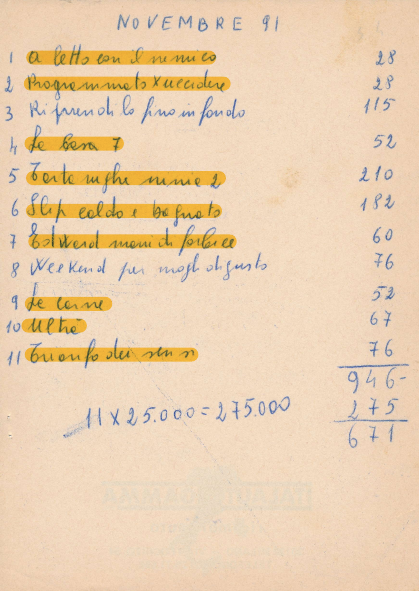 NOVEMBRE 91
1 A letto con il nemico 28
2 Programmato x uccidere 28
3 Riprendilo fino in fondo 115
4 La Casa 7 52
5 Tartarughe ninja 2 210
6 Slip caldo e bagnato 182
7 Edward mani di forbice 60
8 Weekend per mogli di gusto 76
9 La carne 52
10 Ultrà 67
11 Trionfo dei sensi 76
946-
11 x 25.000 = 275.000 275
671